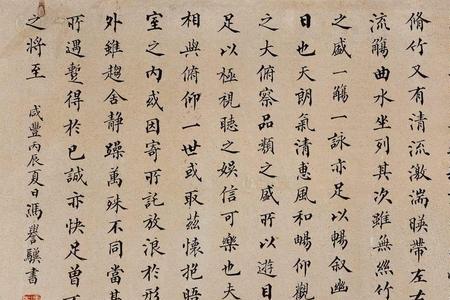 脩竹又有清流激湍暎帶左右
流觴曲水坐列其次雖無絲竹
之盛一觴一詠亦足以暢叙幽
日也天朗氣清惠風和暢仰觀
之大俯察品類之盛所以遊目
足以極視聽之娛信可樂也夫
相與俯仰一世或取茲懷抱晤
室之內或因寄所託放浪於形
外雖趨舍靜躁萬殊不同當其
所遇蹔得於己誠亦快足曾不
之將至
咸豐丙辰夏日馮譽驥書